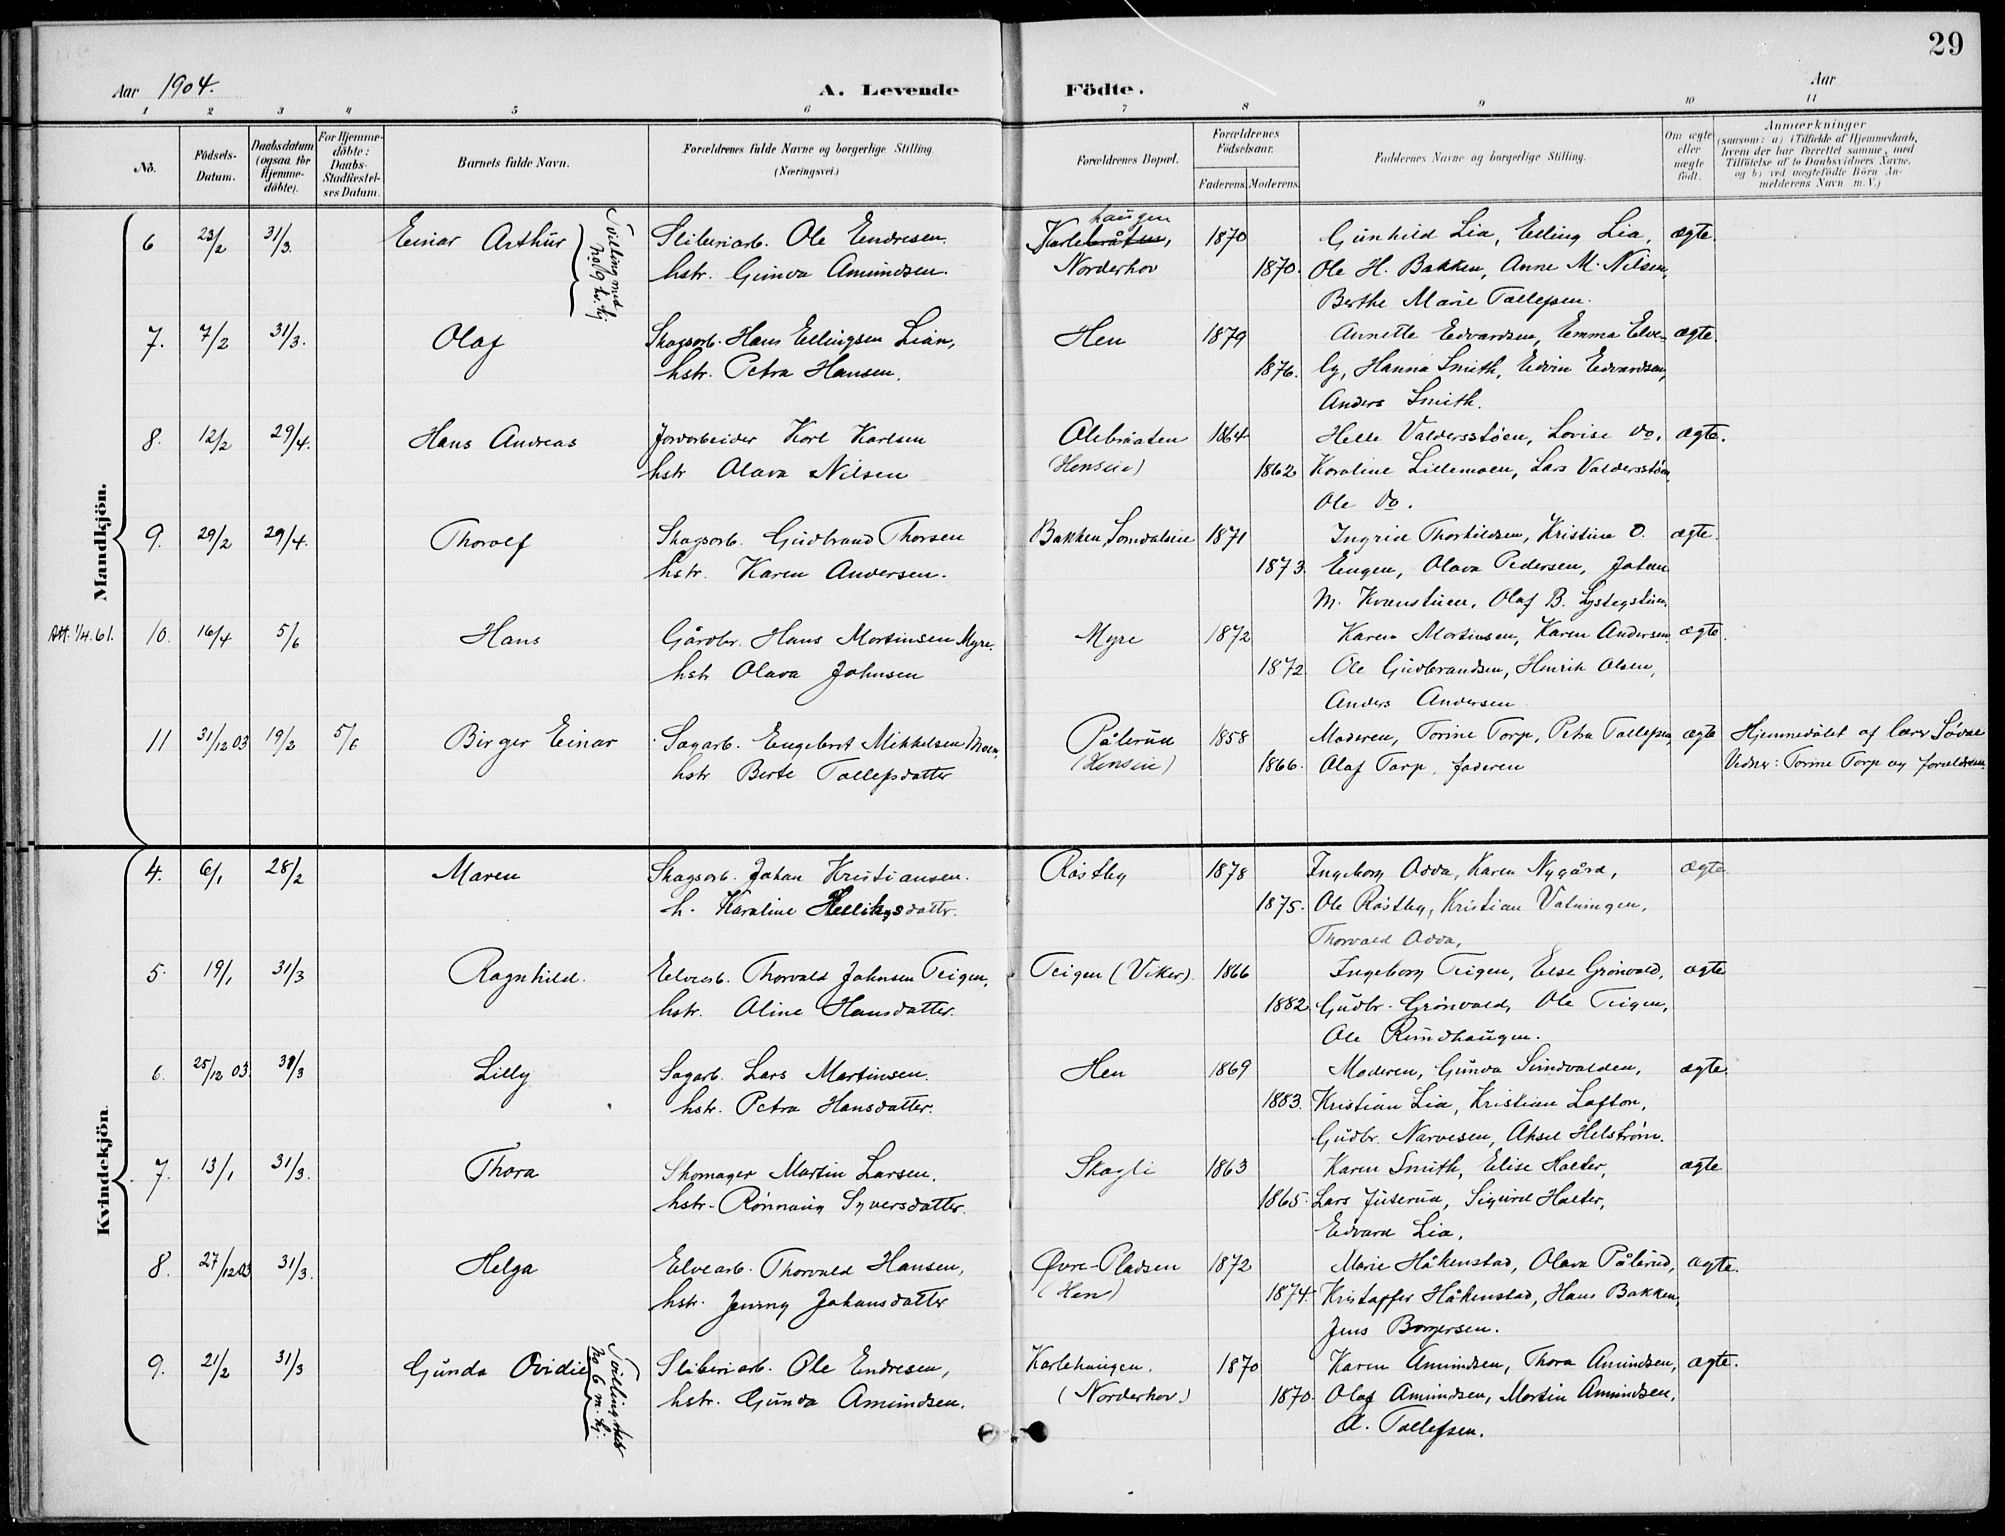 29
Aar 1904. A. Levende Födte. Aar
1 2 3 4 5 6 7 8 9 10 11
No. Födsels-Datum. Daabsdatum (ogsaa for Hjemmedöbte). For Hjemmedöbte: Daabs-Stadfæstelses Datum. Barnets fulde Navn. Forældrenes fulde Navne og borgerlige Stilling. (Næringsvei.) Forældrenes Bopæl. Forældrenes Födselsaar. Faderens. Moderens. Faddernes Navne og borgerlige Stilling. Om ægte eller uægte födt. Anmærkninger (saasom: a) i Tilfælde af Hjemmedaab, hvem der har forrettet samme, med Tilföielse af to Daabsvidners Navne. og b) ved uægtefödte Börn Anmelderens Navn m. V.)
Mandkjön.
haugen
6 23/2 31/3. Einar Arthur Tvilling med No 9 kv. kj Sliberiarb. Ole Endresen. Karlebråten, 1870 Gunhild Lia, Elling Lia, ægte.
hstr. Gunda Amundsen. Norderhov 1870. Ole H. Bakken, Anne M. Nilsen,
Berthe Marie Tollefsen.
7. 7/2 31/3. Olaf Skogsarb. Hans Ellingsen Lian, Hen 1879 Annette Edvardsen, Emma Elve- ægte.
hstr. Petra Hansen. 1876. by, Hanna Smith, Edvin Edvardsen,
Anders Smith.
8. 12/2 29/4. Hans Andreas Jordarbeider Karl Karlsen Olebråaten 1864 Helle Valdersstöen, Lovise do. ægte.
hstr Olava Nilsen (Henseie) 1862 Karoline Lillemoen, Lars Valdersstöen
Ole do.
9. 29/2 29/4. Thorolf Skogsarb. Gudbrand Thorsen Bakken, Somdalseie 1871 Ingrid Thorkildsen, Kristine O. ægte.
hstr. Karen Andersen. 1873. Engen, Olava Pedersen, Johan
M. Kvernstuen, Olaf B. Lystegstuen.
Att. 1/4.61. 10. 16/4 5/6 Hans Gårdbr. Hans Mortinsen Myre. Myre 1872 Karen Mortinsen, Karen Andersen ægte.
hstr Olava Johnsen 1872 Ole Gudbrandsen, Henrik Olsen,
Anders Andersen
11 31/12 03 19/2 5/6 Birger Einar Sagarb. Engebret Mikkelsen Moen, Pålerud 1858 Moderen, Torine Torp, Petra Tollefsen, ægte Hjemmedöbt af lærer Sövde
hstr Berte Tollefsdatter (Henseie) 1866. Olaf Torp, faderen Vidner: Torine Torp og forældrene.
Kvindekjön.
4. 6/1 28/2 Maren Skogsarb. Johan Kristiansen. Röstby 1878 Ingeborg Adda, Karen Nygård, ægte.
h. Karoline Hellihgsdattr. 1875. Ole Röstby, Kristian Valningen,
Thorvald Adda,
5. 19/1 31/3 Ragnhild. Elvearb. Thorvald Johnsen Teigen, Teigen (Viker). 1866 Ingeborg Teigen, Else Grönvold, ægte
hstr. Aline Hansdatter. 1882. Gudbr. Grönvold, Ole Teigen,
Ole Rundhaugen.
6. 25/12 03 31/3 Lilly Sagarb. Lars Martinsen. Hen 1869 Moderen, Gunda Sundvolden, ægte.
hstr. Petra Hansdatter. 1883. Kristian Lia, Kristian Lofton,
Gudbr. Narvesen, Aksel Helström.
7. 13/1 31/3. Thora Skomager Martin Larsen. Skogli 1863 Karen Smith, Elise Halter, ægte
hstr. Rønnaug Syversdatter. 1865. Lars Juserud, Sigurd Halter,
Edvard Lia,
8. 27/12 03 31/3. Helga Elvearb. Thorvald Hansen, Øvre-Pladsen 1872 Marie Håkenstad, Olava Pålerud, ægte.
hstr. Jenny Johansdatter (Hen) 1874 Kristoffer Håkenstad, Hans Bakken,
Jens Borgersen.
9. 21/2 31/3 Gunda Ovidie Tvilling med No 6 m. kj. Sliberiarb. Ole Endresen, Karlehaugen. 1870 Karen Amundsen, Thora Amundsen, ægte.
hstr. Gunda Amundsen. (Norderhov.) 1870. Olaf Amundsen, Martin Amundsen,
A. Tollefsen.